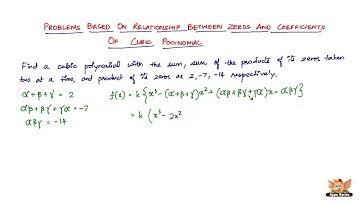 PROBLEMS BASED ON RELATIONSHIP BETWEEN ZEROS AND COEFFICIENTS
OF CUBIC POLYNOMIAL
Find a cubic polynomial with the sum, sum of the products of its zeros taken
two at a time, and product of its zeros as 2, -7, -14 respectively.
α + β + γ = 2
αβ + βγ + γα = -7
αβγ = -14
f(x) = k {x³ - (α+β+γ)x² + (αβ + βγ + γα)x - αβγ}
= k (x³ - 2x²